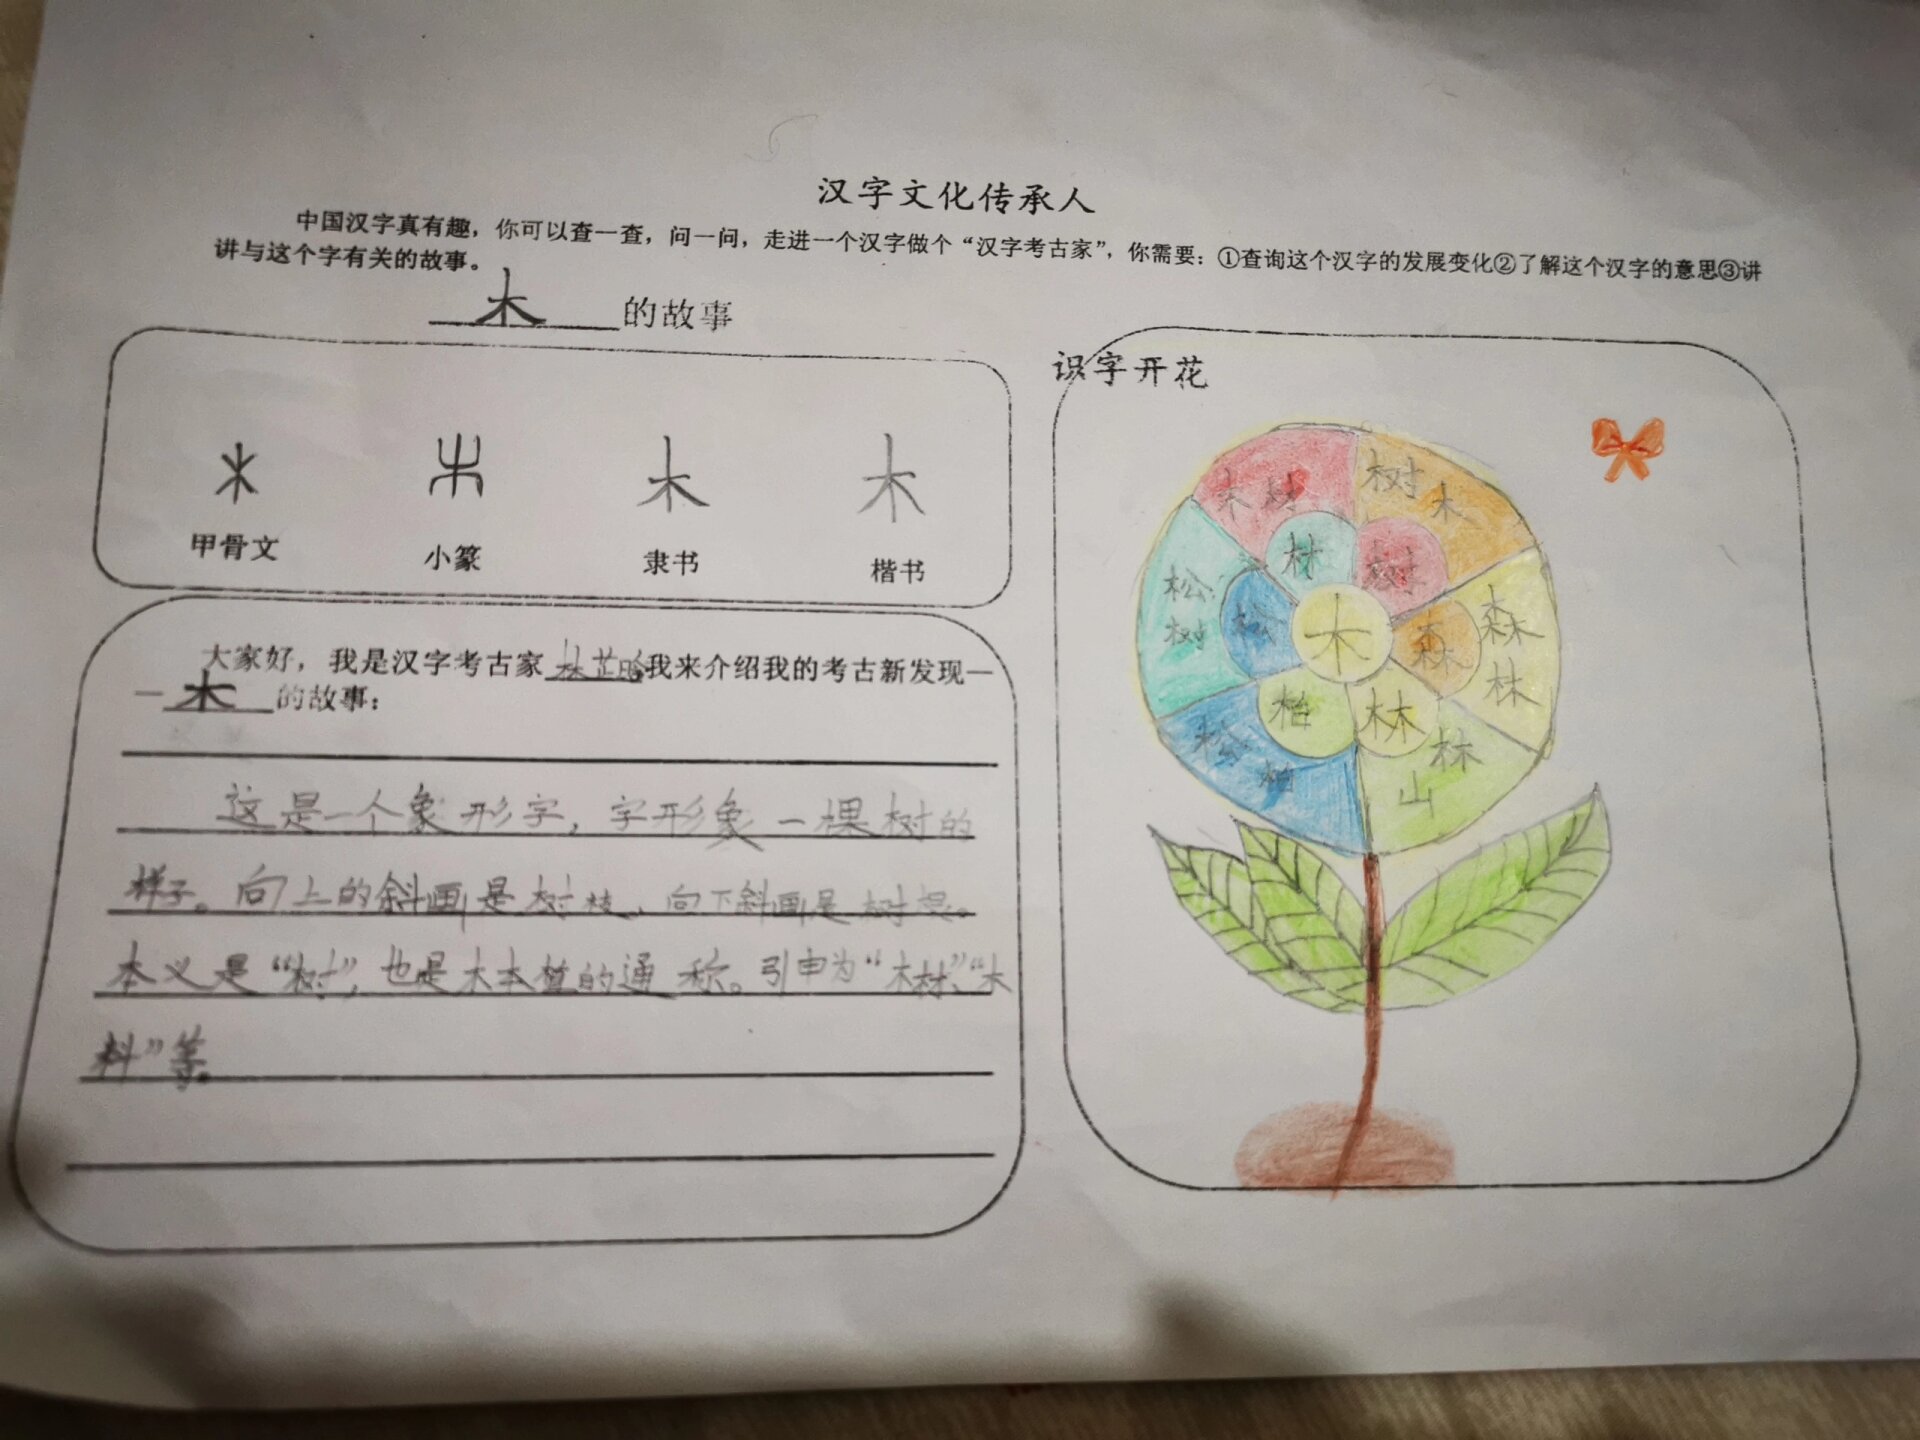 汉字文化传承人
中国汉字真有趣，你可以查一查，问一问，走进一个汉字做个“汉字考古家”，你需要：①查询这个汉字的发展变化②了解这个汉字的意思③讲
讲与这个字有关的故事。
木 的故事
木 木 木 木
甲骨文 小篆 隶书 楷书
大家好，我是汉字考古家 林芷晗 我来介绍我的考古新发现—
— 木 的故事：
这是一个象形字，字形象一棵树的
样子。向上的斜画是树枝，向下斜画是树根。
本义是“树”，也是木本植的通称。引申为“木材”、“木
料”等。
识字开花
木材
树木
松树
林
树
森林
松
木
森
柏
林
松柏
林山